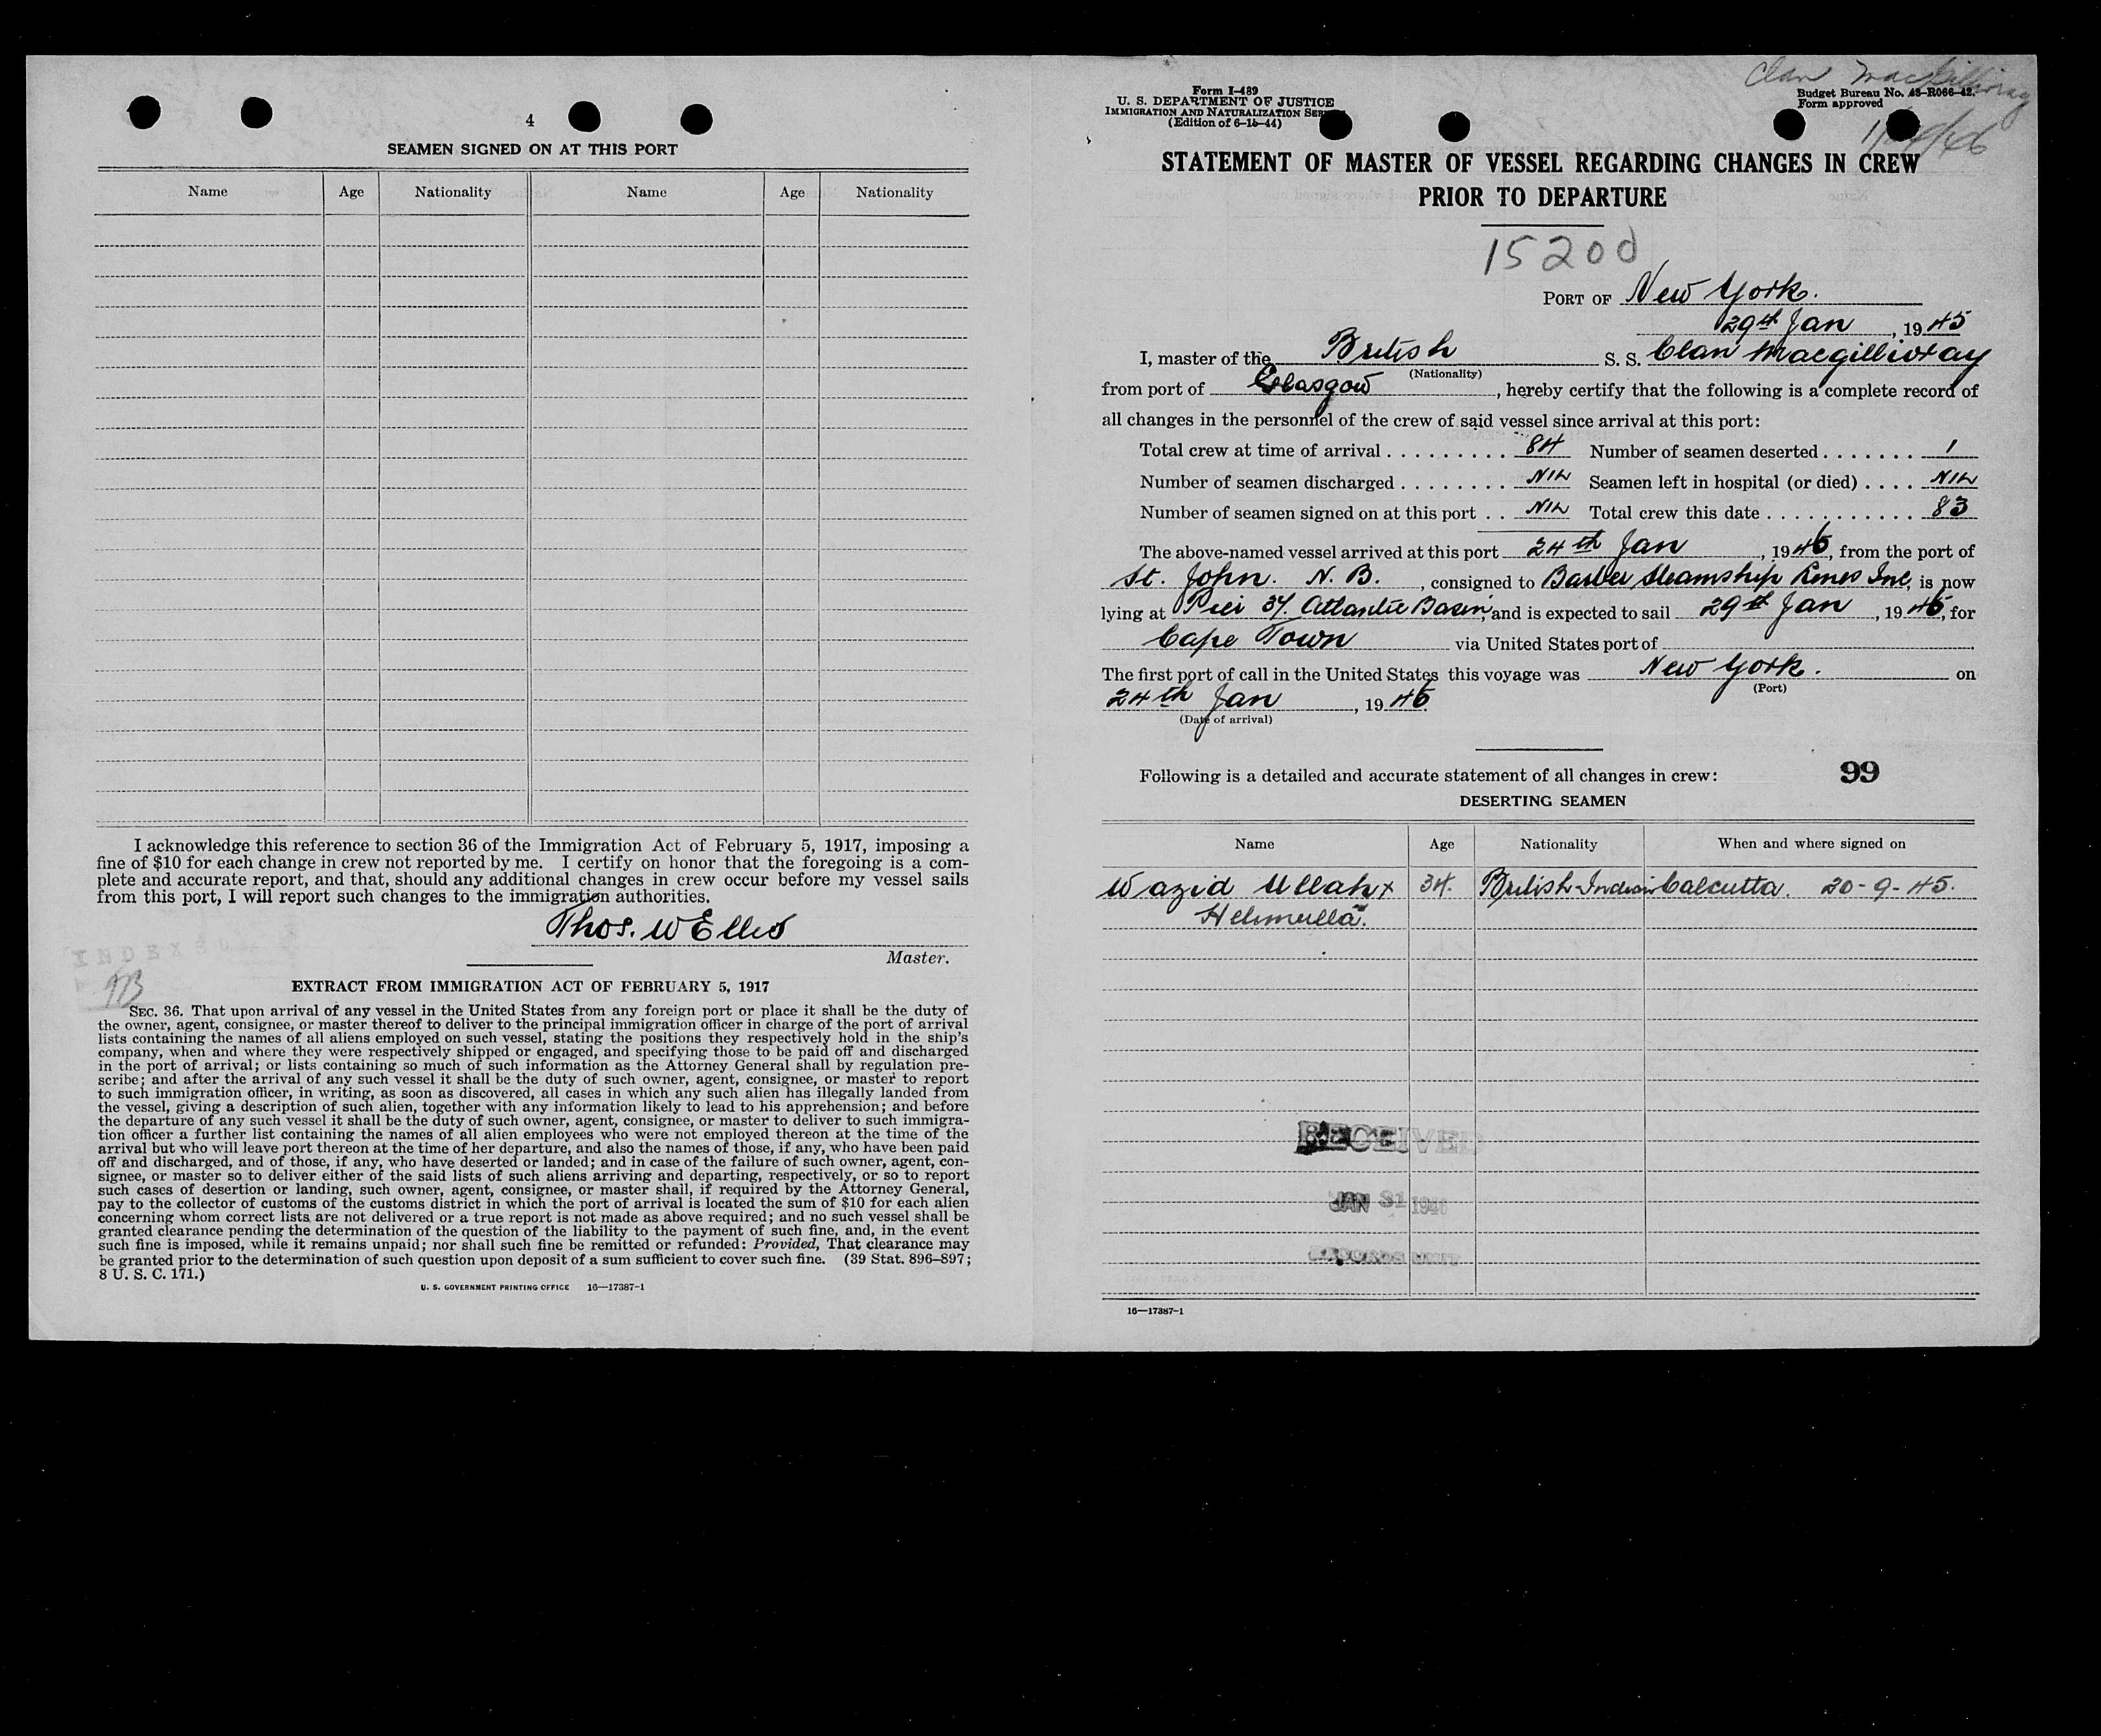 4
SEAMEN SIGNED ON AT THIS PORT
Name Age Nationality Name Age Nationality
I acknowledge this reference to section 36 of the Immigration Act of February 5, 1917, imposing a
fine of $10 for each change in crew not reported by me. I certify on honor that the foregoing is a com-
plete and accurate report, and that, should any additional changes in crew occur before my vessel sails
from this port, I will report such changes to the immigration authorities.
Thos. W Ellis
Master.
INDEXED
EXTRACT FROM IMMIGRATION ACT OF FEBRUARY 5, 1917
SEC. 36. That upon arrival of any vessel in the United States from any foreign port or place it shall be the duty of
the owner, agent, consignee, or master thereof to deliver to the principal immigration officer in charge of the port of arrival
lists containing the names of all aliens employed on such vessel, stating the positions they respectively hold in the ship's
company, when and where they were respectively shipped or engaged, and specifying those to be paid off and discharged
in the port of arrival; or lists containing so much of such information as the Attorney General shall by regulation pre-
scribe; and after the arrival of any such vessel it shall be the duty of such owner, agent, consignee, or master to report
to such immigration officer, in writing, as soon as discovered, all cases in which any such alien has illegally landed from
the vessel, giving a description of such alien, together with any information likely to lead to his apprehension; and before
the departure of any such vessel it shall be the duty of such owner, agent, consignee, or master to deliver to such immigra-
tion officer a further list containing the names of all alien employees who were not employed thereon at the time of the
arrival but who will leave port thereon at the time of her departure, and also the names of those, if any, who have been paid
off and discharged, and of those, if any, who have deserted or landed; and in case of the failure of such owner, agent, con-
signee, or master so to deliver either of the said lists of such aliens arriving and departing, respectively, or so to report
such cases of desertion or landing, such owner, agent, consignee, or master shall, if required by the Attorney General,
pay to the collector of customs of the customs district in which the port of arrival is located the sum of $10 for each alien
concerning whom correct lists are not delivered or a true report is not made as above required; and no such vessel shall be
granted clearance pending the determination of the question of the liability to the payment of such fine, and, in the event
such fine is imposed, while it remains unpaid; nor shall such fine be remitted or refunded: Provided, That clearance may
be granted prior to the determination of such question upon deposit of a sum sufficient to cover such fine. (39 Stat. 896–897;
8 U. S. C. 171.)
U. S. GOVERNMENT PRINTING OFFICE 16—17387-1
Clan MacGillivray
Form I-489
U. S. DEPARTMENT OF JUSTICE
IMMIGRATION AND NATURALIZATION
(Edition of 6-15-44)
Budget Bureau No. 43-R066-42.
Form approved
STATEMENT OF MASTER OF VESSEL REGARDING CHANGES IN CREW
PRIOR TO DEPARTURE
15200
PORT OF New York.
29th Jan, 1945
I, master of the British S. S. Clan Macgillivray
(Nationality)
from port of Glasgow, hereby certify that the following is a complete record of
all changes in the personnel of the crew of said vessel since arrival at this port:
Total crew at time of arrival 84 Number of seamen deserted 1
Number of seamen discharged NIL Seamen left in hospital (or died) NIL
Number of seamen signed on at this port NIL Total crew this date 83
The above-named vessel arrived at this port 24th Jan, 1946, from the port of
St. John. N. B., consigned to Barber Steamship Lines Inc, is now
lying at Pier 37. Atlantic Basin, and is expected to sail 29th Jan, 1946, for
Cape Town via United States port of
The first port of call in the United States this voyage was New York. on
(Port)
24th Jan, 1946
(Date of arrival)
Following is a detailed and accurate statement of all changes in crew: 99
DESERTING SEAMEN
Name Age Nationality When and where signed on
Wazid Ullah x 34. British Indian Calcutta. 20-9-45.
RECEIVED
JAN 31 1946
RECORDS UNIT
16—17387-1